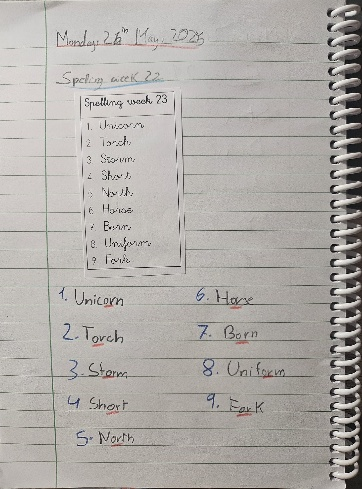 Monday, 26th May, 2025
Spelling week 22
Spelling week 23
1. Unicorn
2. Torch
3. Storm
4. Short
5. North
6. Horse
7. Born
8. Uniform
9. Fork
1. Unicorn
2. Torch
3. Storm
4 Short
5. North
6. Horse
7. Born
8. Uniform
9. Fork